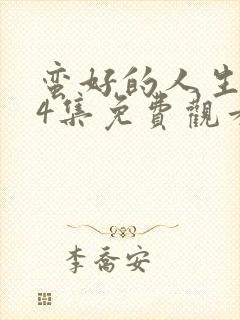 蛮好的人生
4集免費觀
李喬安